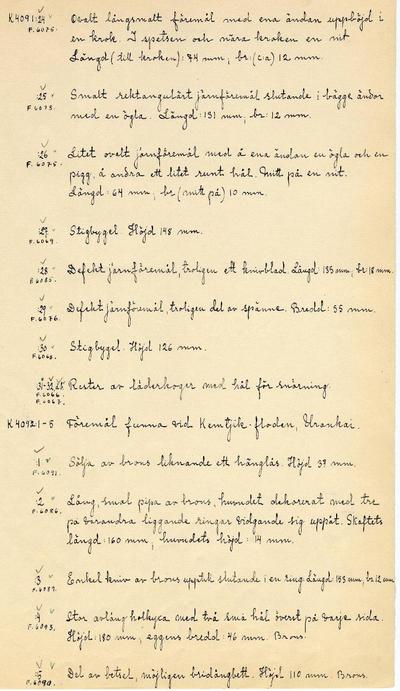 K 4091:24 Ovalt långsmalt föremål med ena ändan uppböjd i
F. 6075. en krok. I spetsen och nära kroken en nit
Längd (till kroken): 74 mm, br. (c:a) 12 mm.
:25 Smalt rektangulärt järnföremål slutande i bägge ändor
F. 6073. med en ögla. Längd: 131 mm, br: 12 mm.
:26 Litet ovalt järnföremål med å ena ändan en ögla och en
F. 6075. pigg, å andra ett litet runt hål. Mitt på en nit.
Längd: 64 mm, br (mitt på) 10 mm.
:27 Stigbygel. Höjd 148 mm.
F. 6069.
:28 Defekt järnföremål, troligen ett knivblad Längd 135 mm, br: 18 mm.
F. 6085.
:29 Defekt järnföremål, troligen del av spänne. Bredd: 55 mm.
F. 6076.
:30 Stigbygel. Höjd 126 mm.
F. 6068.
Rester av läderkoger med hål för snörning.
F. 6066.
F. 6067.
K 4092:1-5 Föremål funna vid Kemtjik-floden, Urankai.
:1 Sölja av brons liknande ett hänglås. Höjd 37 mm.
F. 6091.
:2 Lång, smal pipa av brons, huvudet dekorerat med tre
F. 6086. på varandra liggande ringar vidgande sig uppåt. Skaftets
längd: 160 mm, huvudets höjd: 14 mm.
:3 Enkel kniv av brons upptill slutande i en ring. Längd 133 mm, br. 12 mm
:4 Stor avlång holkyxa med två små hål överst på varje sida.
F. 6093. Höjd: 180 mm, eggens bredd: 46 mm. Brons.
:5 Del av betsel, möjligen bridångbett. Höjd 110 mm. Brons.
F. 6090.